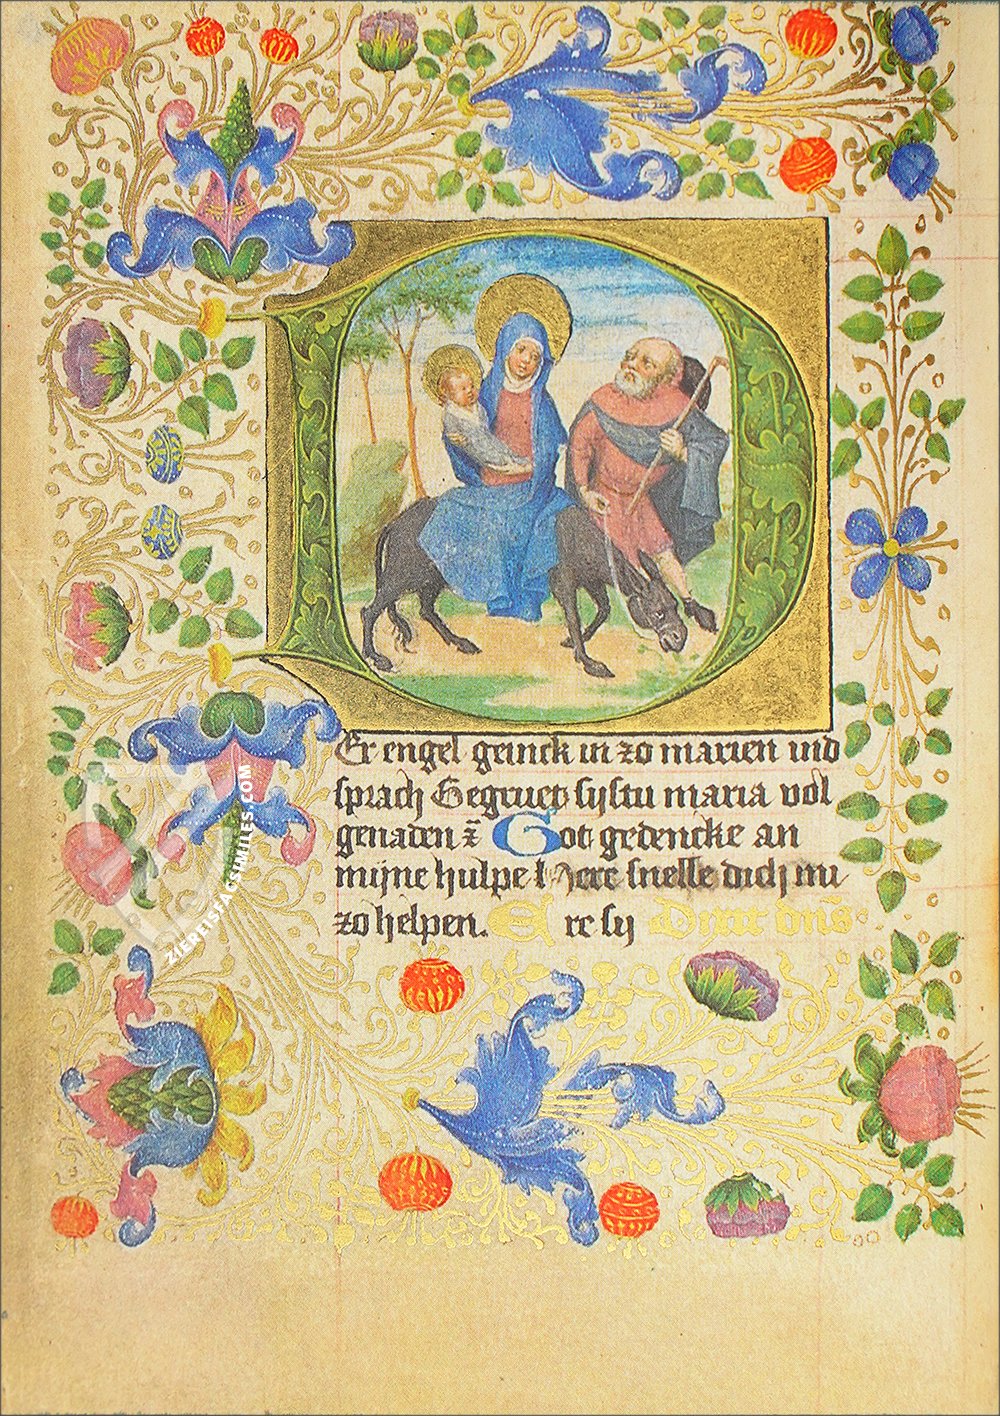 DEr engel geinck in zo marien vnd
sprach Gegruet systu maria vol
genaden z̄ Got gedencke an
mijne hulpe Here snelle dich mi
zo helpen. Ere sij Dixit dn̄s
ZIEREISFACSIMILES.COM